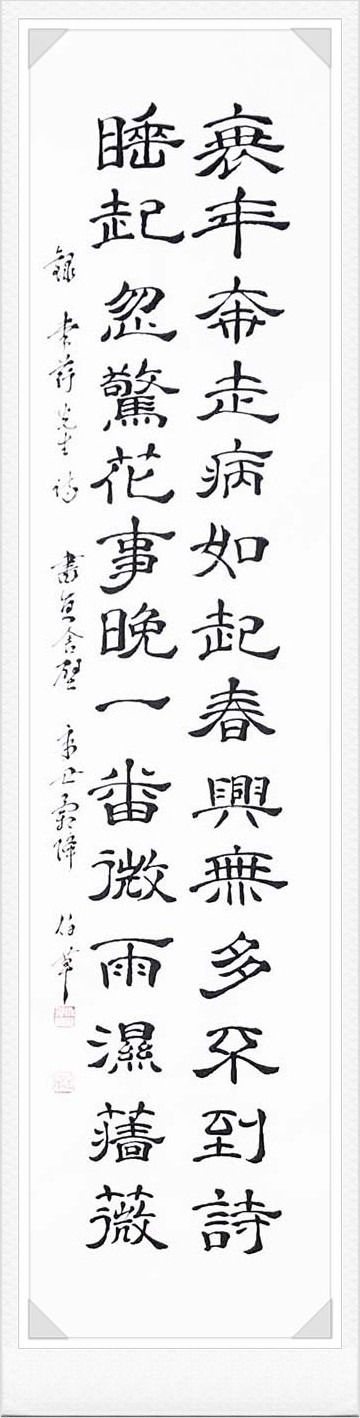 衰年奔走病如起春興無多不到詩
睡起忽驚花事晚一番微雨濕薔薇
錄 李莊先生詩 書直舍壁 辛丑霜降 伯華